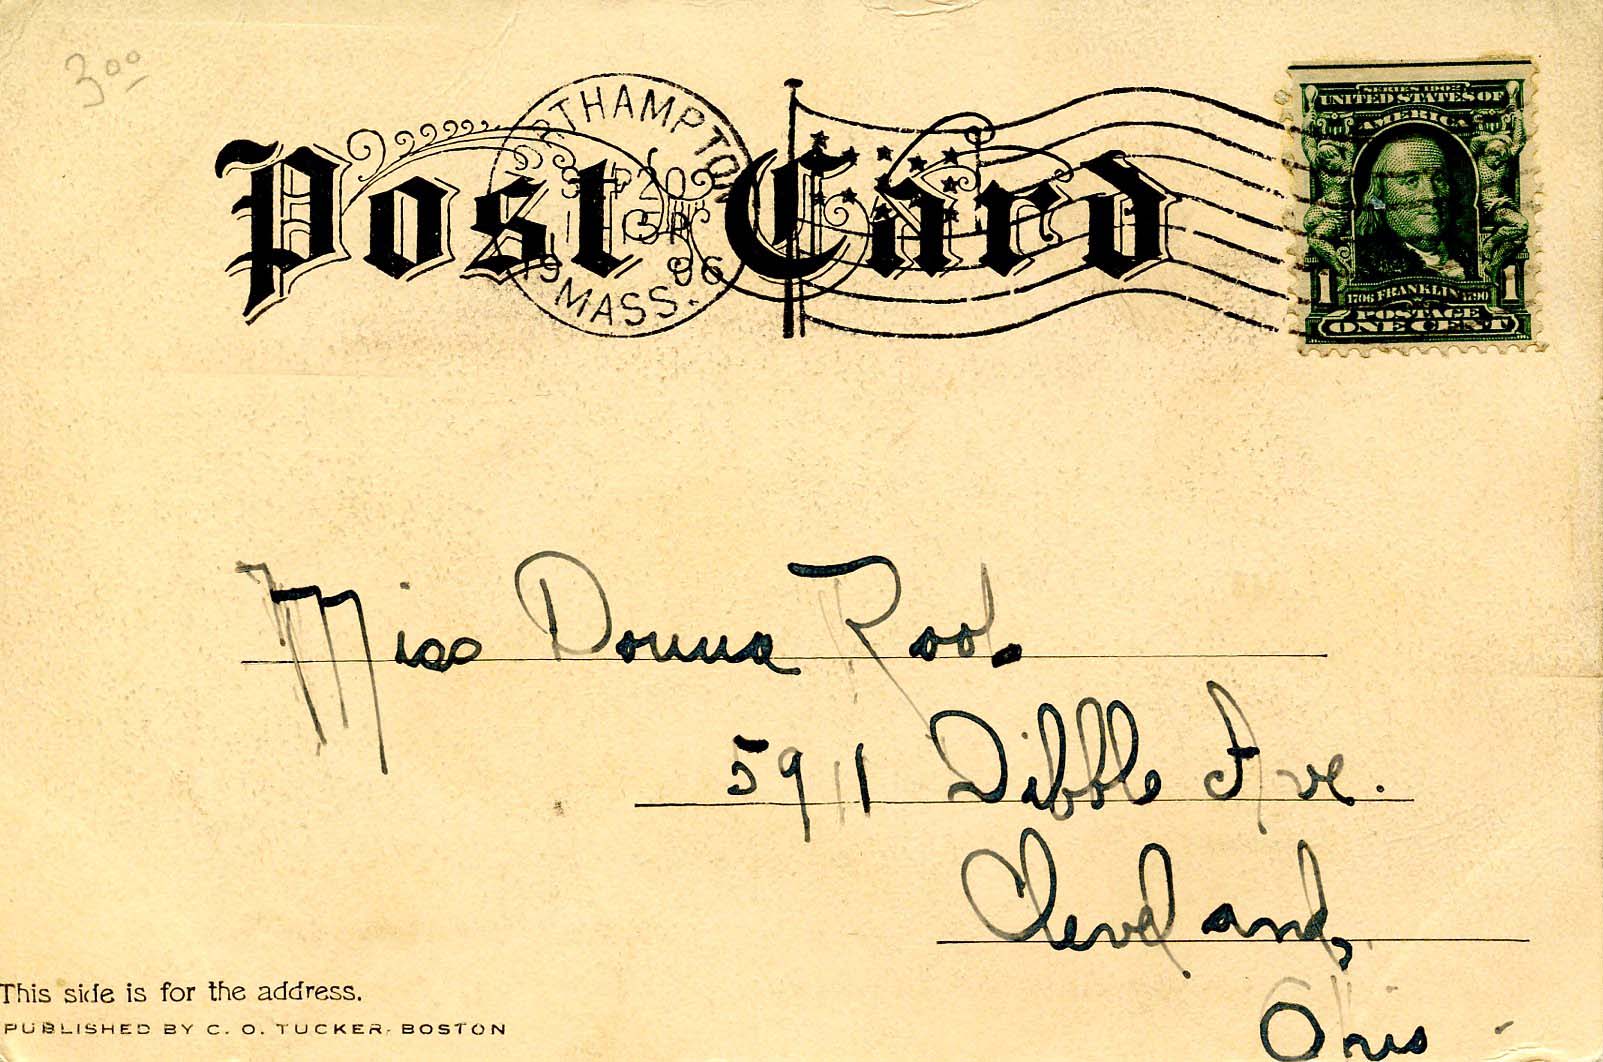 3.00
Post Card
NORTHAMPTON
SEP 20
1906
MASS.
SERIES 1902
UNITED STATES OF
AMERICA
1 1706 FRANKLIN 1790 1
POSTAGE
ONE CENT
Miss Donna Root.
5911 Dibble Ave.
Cleveland,
Ohio
This side is for the address.
PUBLISHED BY C. O. TUCKER, BOSTON